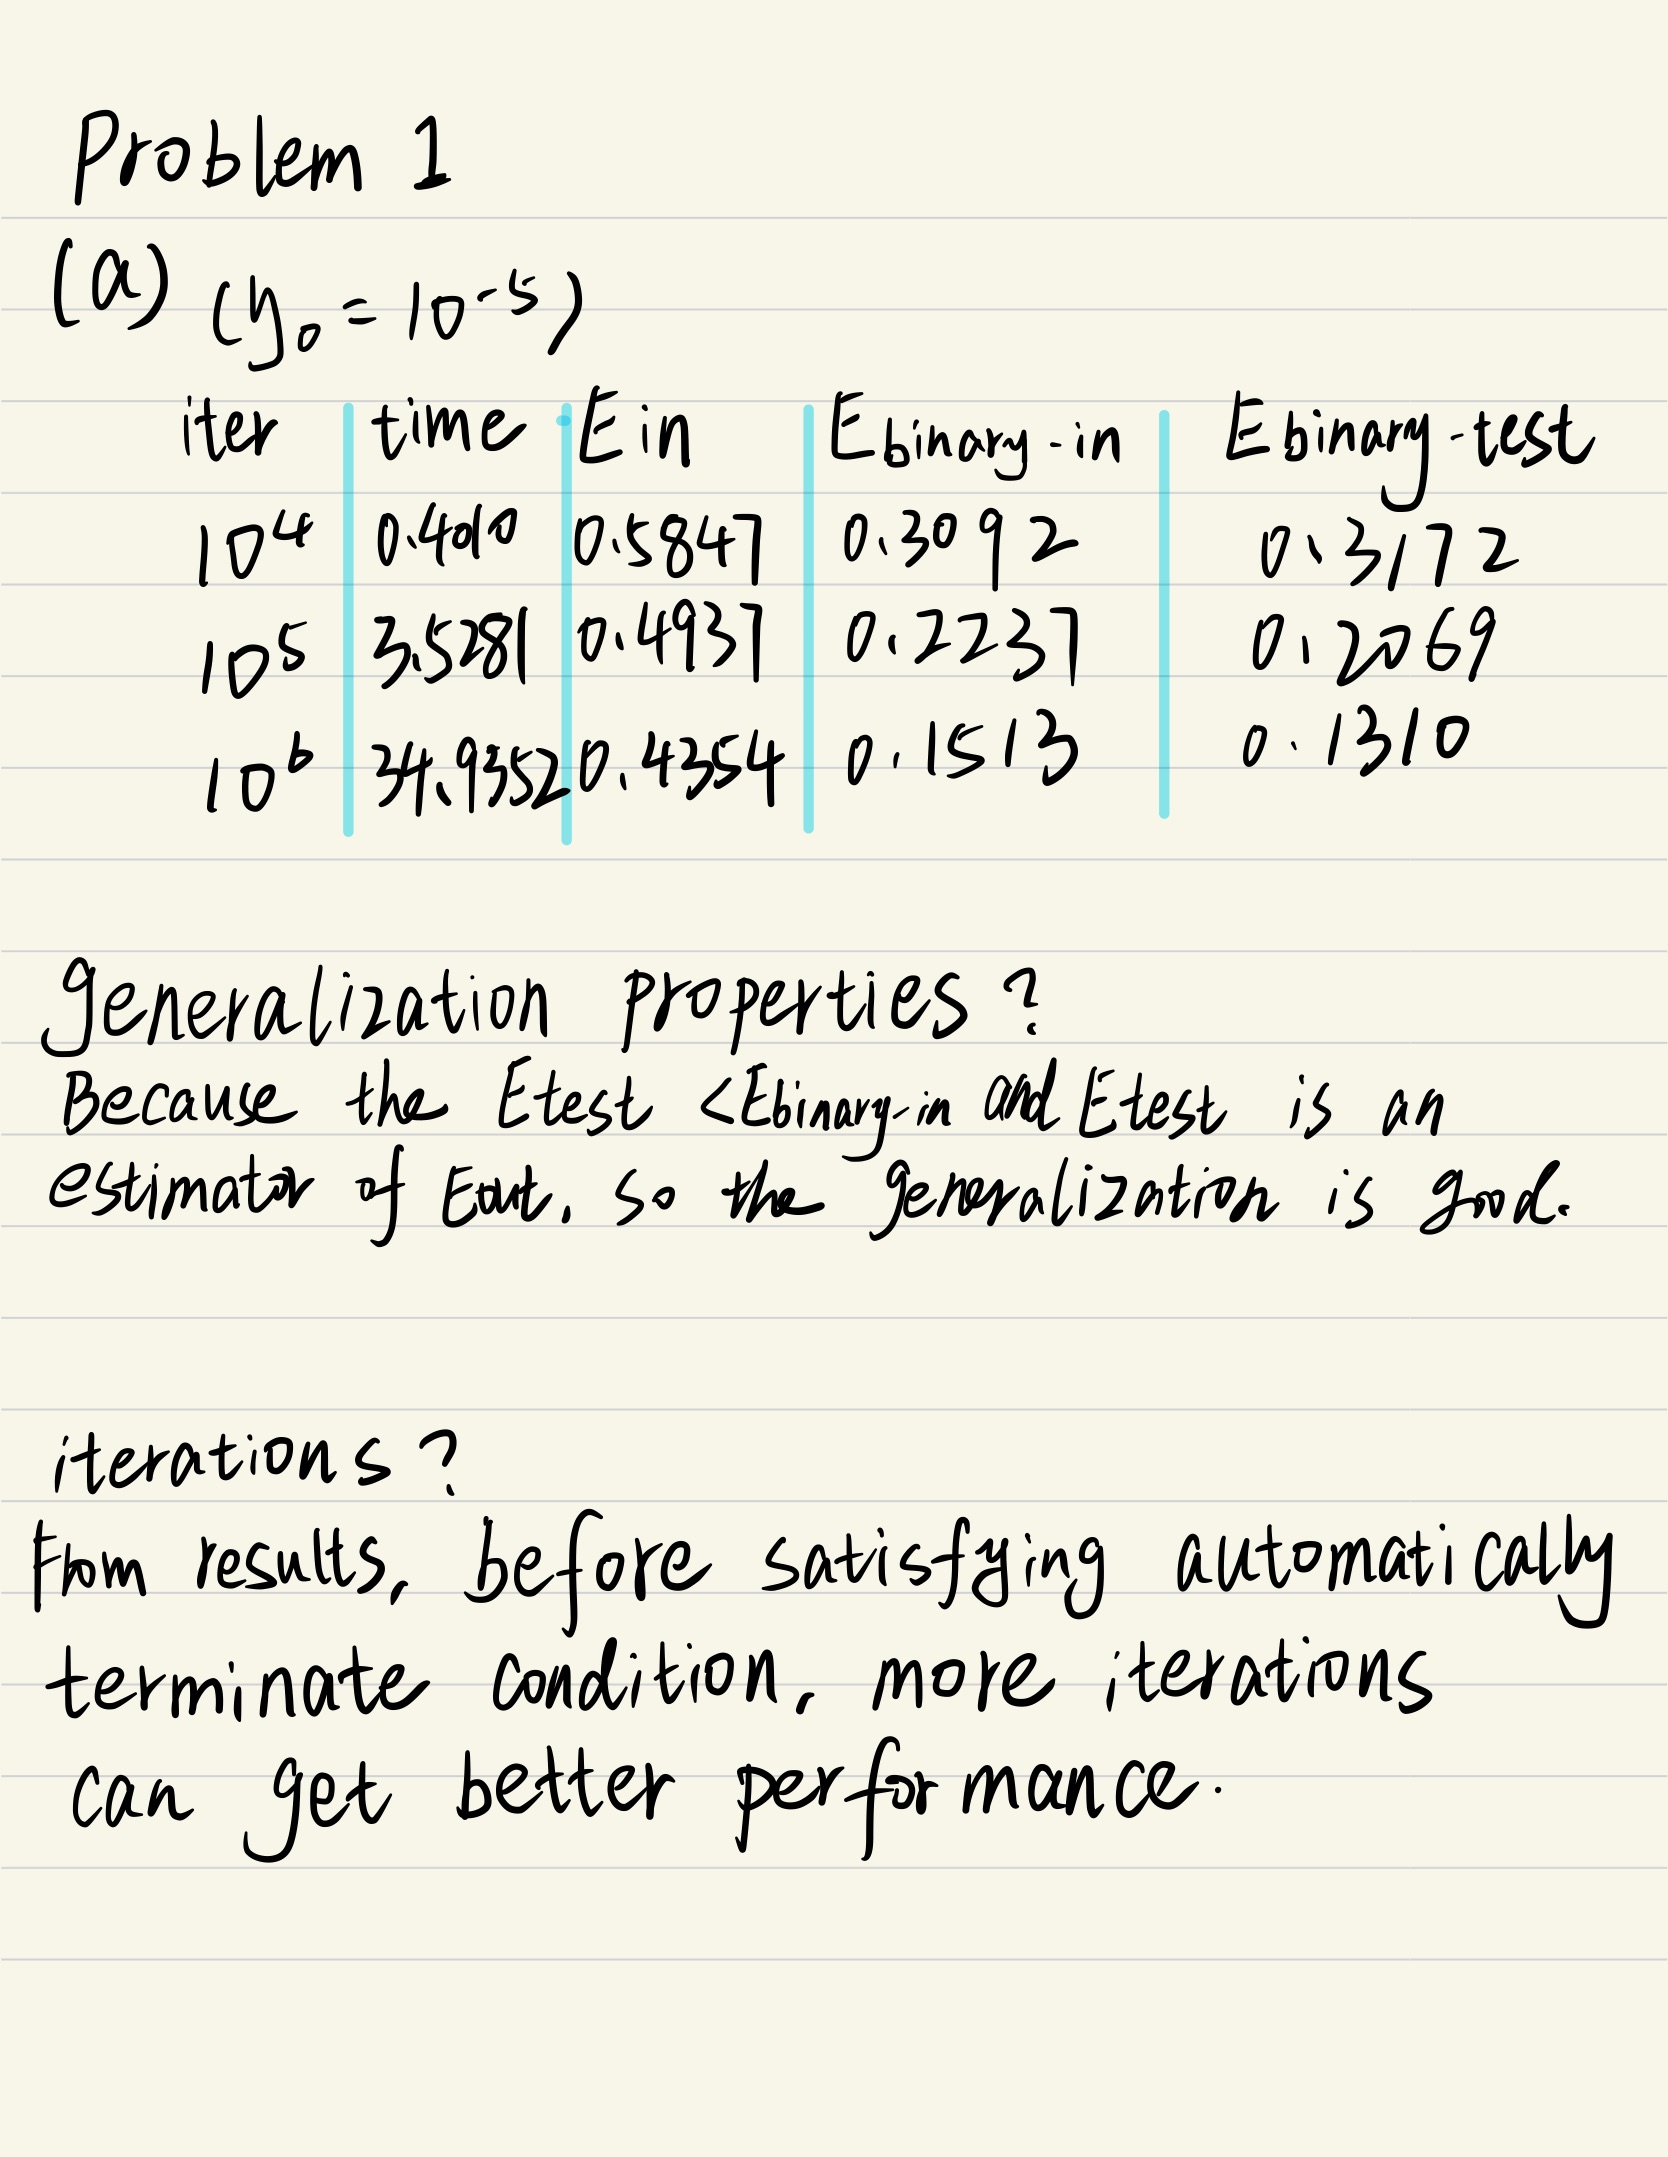 Problem 1
(a) (y₀ = 10⁻⁵)
iter time Ein Ebinary-in Ebinary-test
10⁴ 0.4010 0.5847 0.3092 0.3172
10⁵ 3.5281 0.4937 0.2237 0.2069
10⁶ 34.9352 0.4354 0.1513 0.1310
generalization properties?
Because the Etest <Ebinary-in and Etest is an
estimator of Eout. so the generalization is good.
iterations?
From results, before satisfying automatically
terminate condition, more iterations
can get better performance.